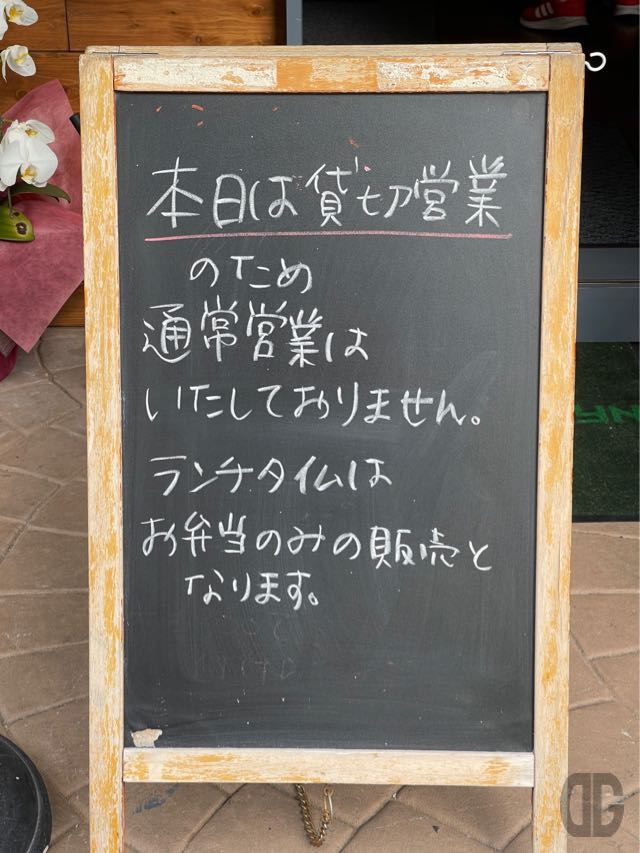 本日は貸切営業
のため
通常営業は
いたしておりません。
ランチタイムは
お弁当のみの販売と
なります。
DG